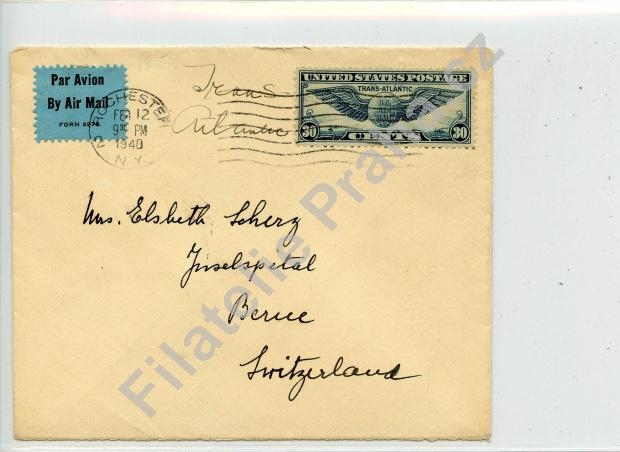 Par Avion
By Air Mail
FORM 2978
ROCHESTER
FEB 12
9 30 PM
1940
N.Y.
Trans
Atlantic
UNITED STATES POSTAGE
TRANS-ATLANTIC
30 CENTS 30
Mrs. Elsbeth Scherz
Inselspital
Berne
Switzerland